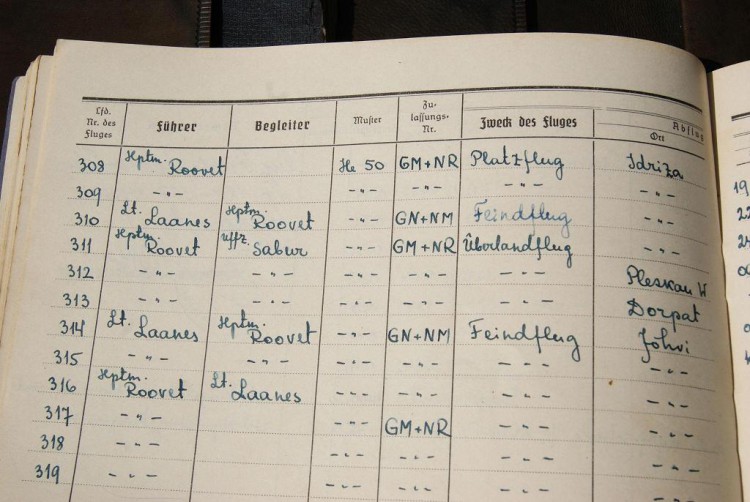 Lfd. Nr. des Fluges Führer Begleiter Muster Zulassungs-Nr. Zweck des Fluges Abflug Ort
308 Hptm. Roovet He 50 GM+NR Platzflug Idriza
309 -"- -"- -"- -"-
310 Lt. Laanes Hptm. Roovet -"- GN+NM Feindflug -"-
311 Hptm. Roovet Uffz. Sabur -"- GM+NR Überlandflug -"-
312 -"- -"- -"- -"- -"- Pleskau W
313 -"- -"- -"- -"- -"- Dorpat
314 Lt. Laanes Hptm. Roovet -"- GN+NM Feindflug Jöhvi
315 -"- -"- -"- -"- -"- -"-
316 Hptm. Roovet Lt. Laanes -"- -"- -"- -"-
317 -"- -"- GM+NR -"- -"-
318 -"- -"- -"- -"- -"-
319 -"- -"- -"- -"- -"-